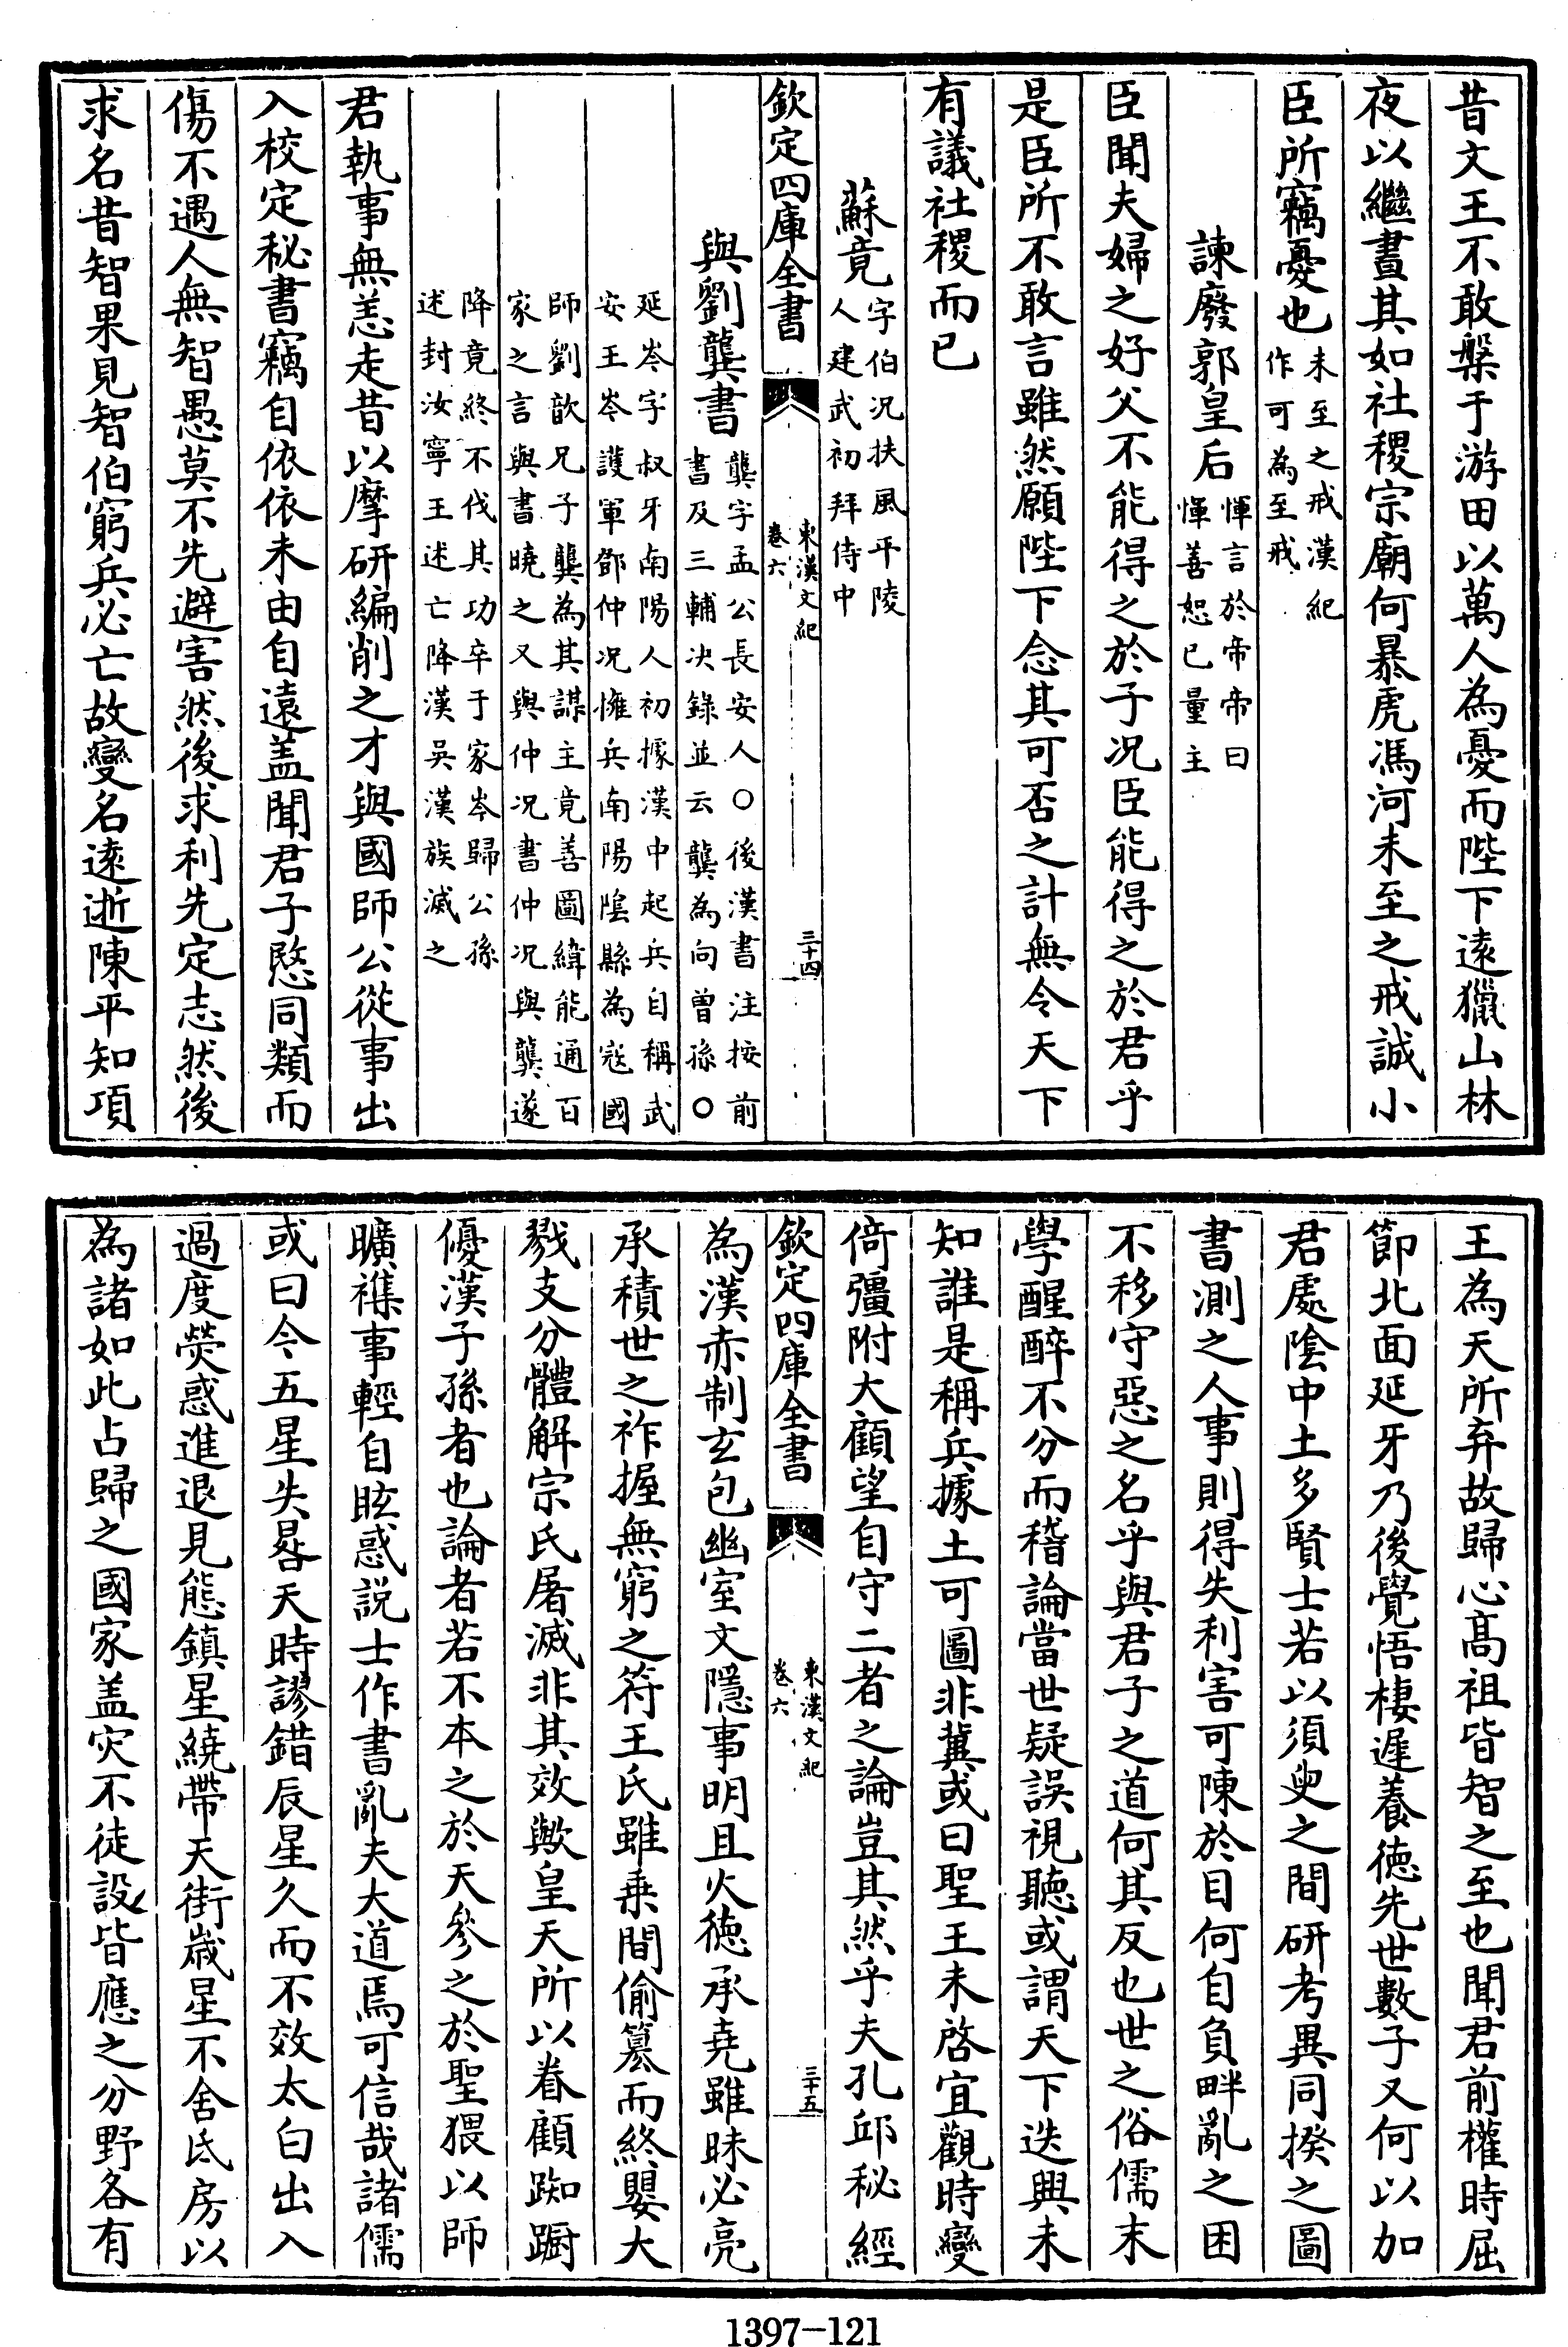 昔文王不敢槃于游田以萬人為憂而陛下遠獵山林
夜以繼晝其如社稷宗廟何暴虎馮河未至之戒誠小
臣所竊憂也未至之戒漢紀作可為至戒
諫廢郭皇后惲言於帝帝曰惲善恕已量主
臣聞夫婦之好父不能得之於子况臣能得之於君乎
是臣所不敢言雖然願陛下念其可否之計無令天下
有議社稷而已
蘇竟字伯况扶風平陵人建武初拜侍中
欽定四庫全書
東漢文紀
卷六
三十四
與劉龔書龔字孟公長安人○後漢書注按前書及三輔决錄並云龔為向曾孫○
延岑字叔牙南陽人初據漢中起兵自稱武安王岑護軍鄧仲况擁兵南陽陰縣為宼國
師劉歆兄子龔為其謀主竟善圖緯能通百家之言與書曉之又與仲况書仲况與龔遂
降竟終不伐其功卒于家岑歸公孫述封汝寧王述亡降漢吳漢族滅之
君執事無恙走昔以摩研編削之才與國師公從事出
入校定秘書竊自依依未由自遠盖聞君子愍同類而
傷不遇人無智愚莫不先避害然後求利先定志然後
求名昔智果見智伯窮兵必亡故變名遠逝陳平知項
王為天所弃故歸心髙祖皆智之至也聞君前權時屈
節北面延牙乃後覺悟棲遲養徳先世數子又何以加
君處陰中土多賢士若以須臾之間研考異同揆之圖
書測之人事則得失利害可陳於目何自負畔亂之困
不移守惡之名乎與君子之道何其反也世之俗儒末
學醒醉不分而稽論當世疑誤視聽或謂天下迭興未
知誰是稱兵據土可圖非冀或曰聖王未啓宜觀時變
倚彊附大顧望自守二者之論豈其然乎夫孔邱秘經
欽定四庫全書
東漢文紀
卷六
三十五
為漢赤制玄包幽室文隱事明且火徳承堯雖昧必亮
承積世之祚握無窮之符王氏雖乗間偷簒而終嬰大
戮支分體解宗氏屠滅非其效歟皇天所以眷顧踟蹰
優漢子孫者也論者若不本之於天參之於聖猥以師
曠襍事輕自眩惑説士作書亂夫大道焉可信哉諸儒
或曰今五星失晷天時謬錯辰星久而不效太白出入
過度熒惑進退見態鎮星繞帶天街歲星不舍氐房以
為諸如此占歸之國家盖灾不徒設皆應之分野各有
1397-121